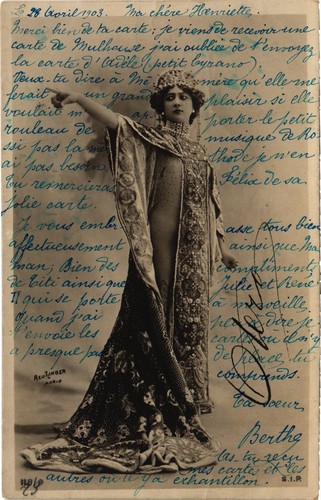 Le 28 Avril 1903. Ma chère Henriette.
Merci bien de ta carte; je viens de recevoir une
carte de Mulhouse j'ai oubliée de t'envoyer
la carte d'Adèle (petit Cyrano).
Veux-tu dire à mère qu'elle me
ferait un grand plaisir si elle
voulait porter le petit
rouleau de musique de Ro
ssi pas la je n'en
ai pas besoin.
Tu remercieras Félia de sa
jolie carte.
Je vous embrasse tous bien
affectueusement ainsi que Ma
man; Bien des compliments
de Titi ainsi que Julie et René
Il qui se porte à merveille
Quand j'ai pas à dire je
t'envoie les cartes où il n'y
a presque pas de place, tu
comprends.
Ta sœur
Berthe
As tu reçu
mes carte et les
autres où il y a échantillon.
REUTLINGER
PARIS
S.I.P.